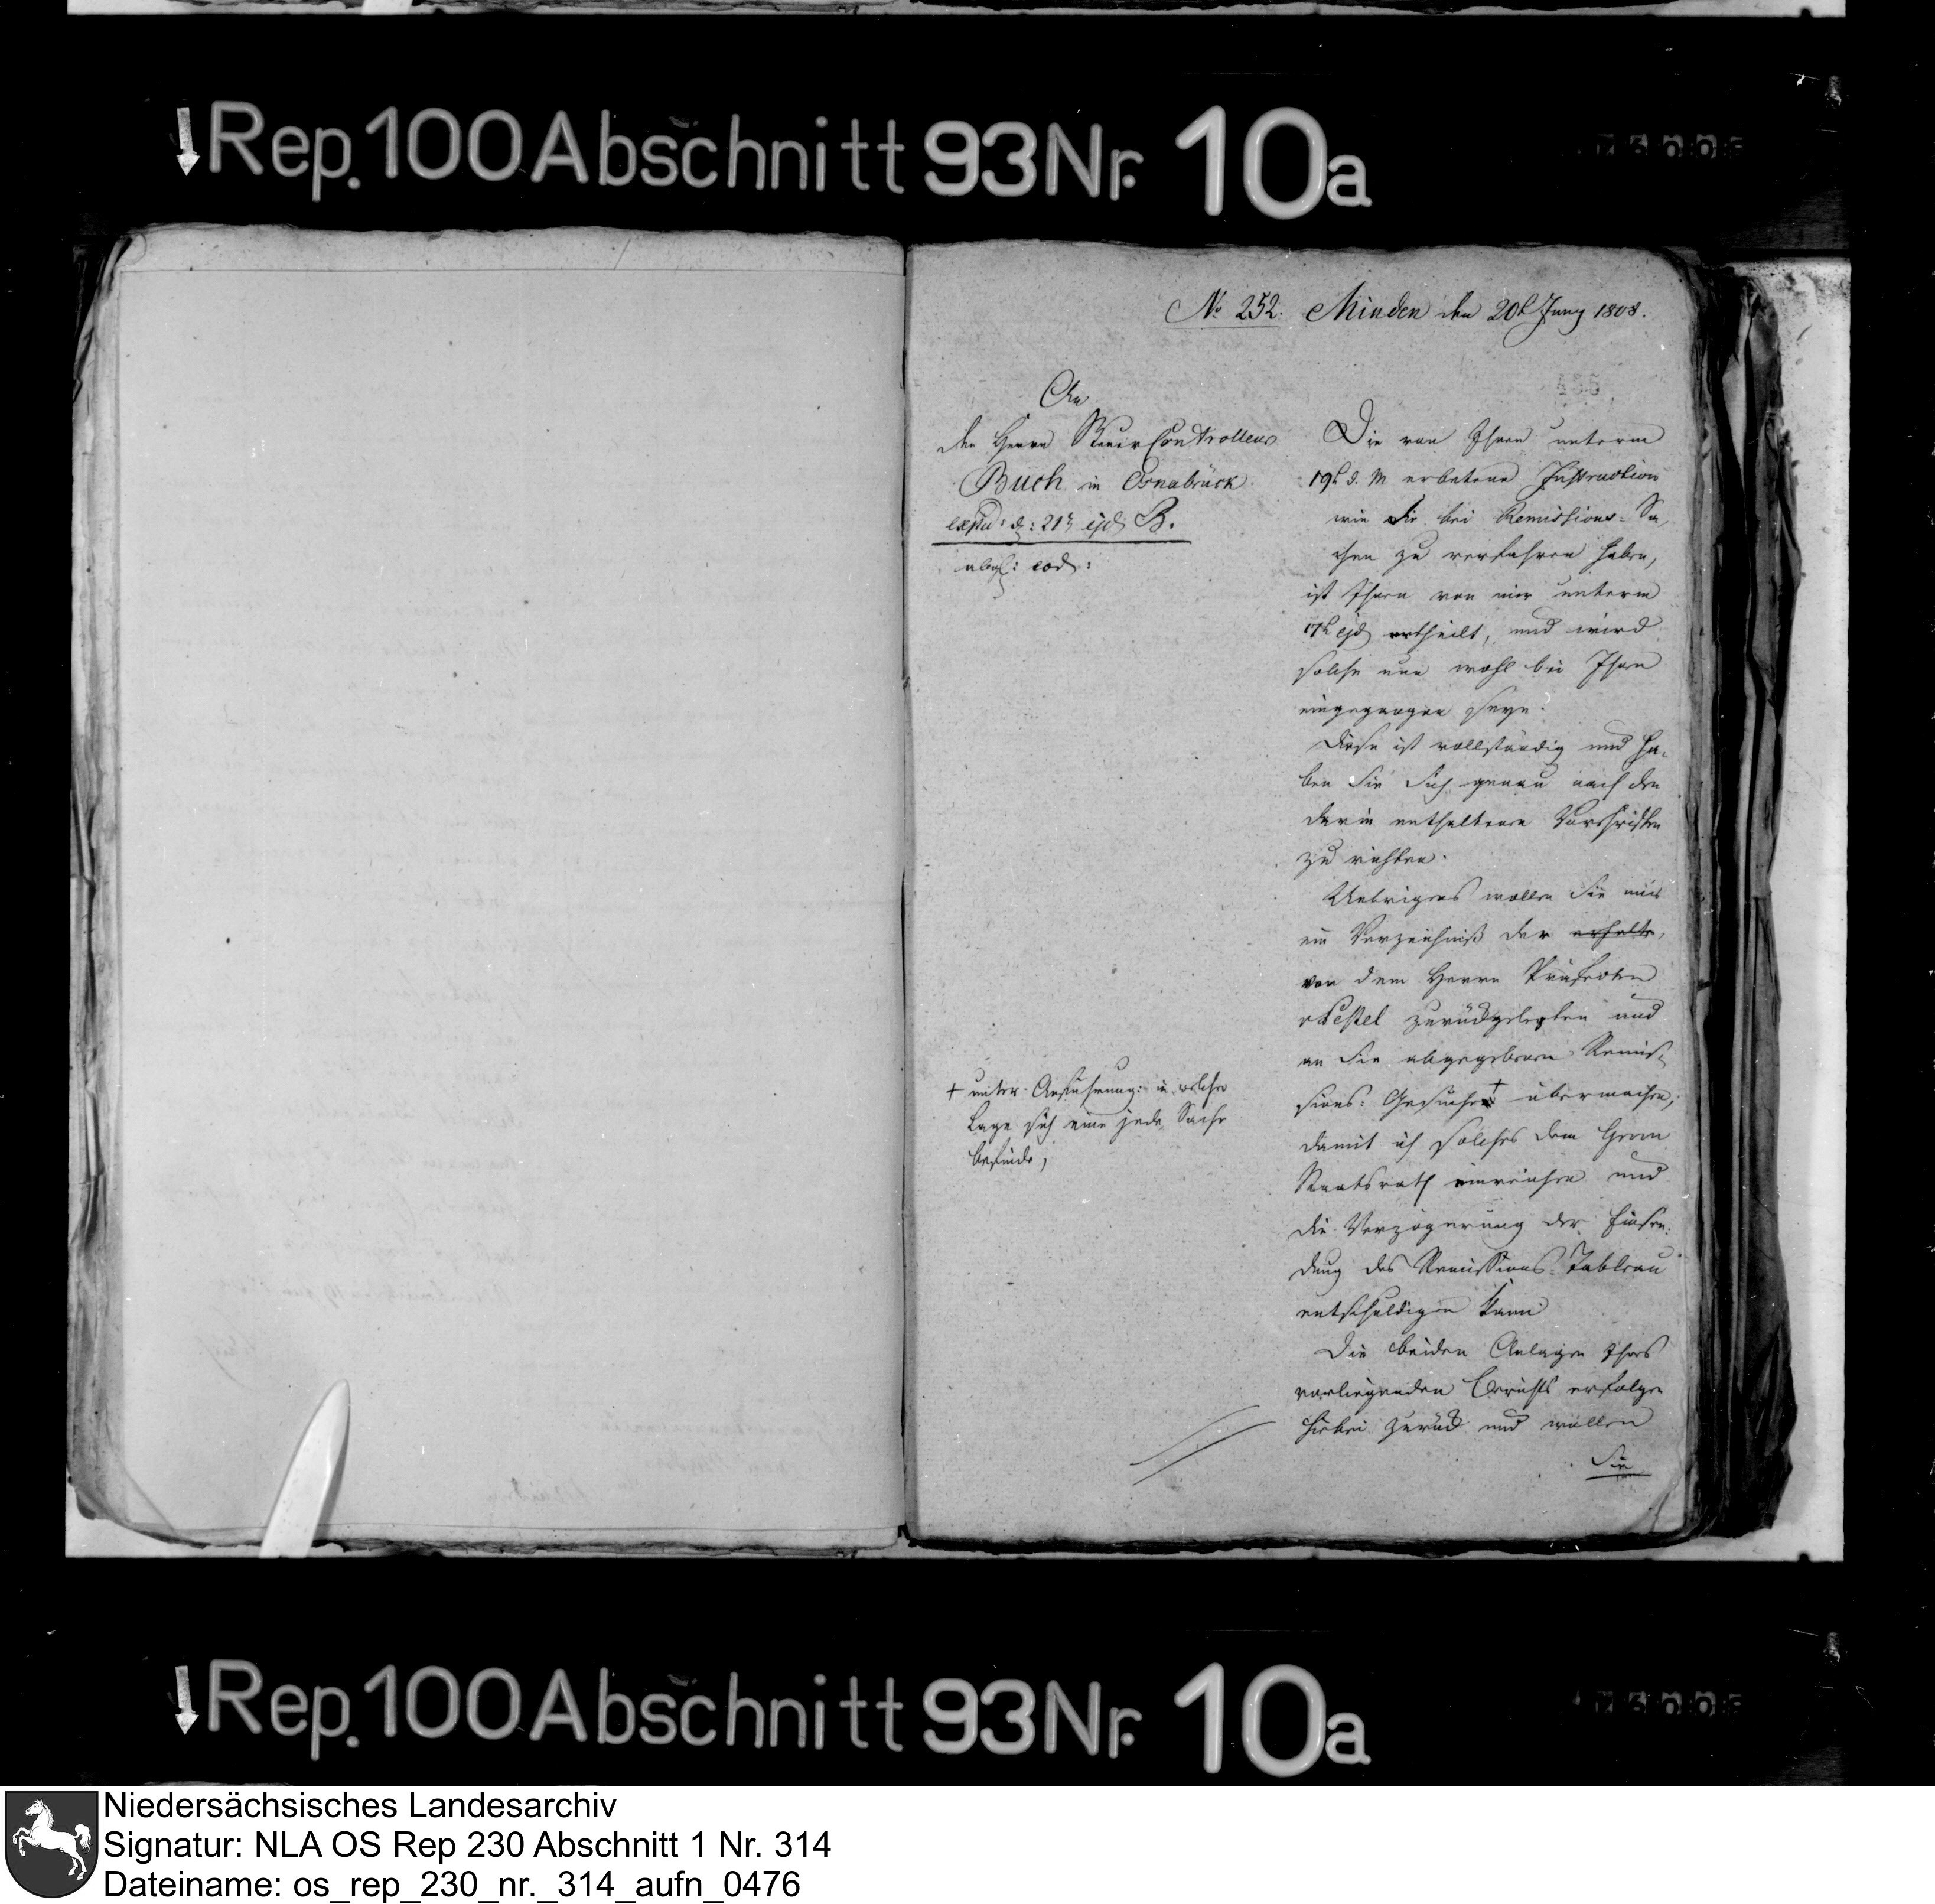 Rep. 100 Abschnitt 93 Nr. 10a
No 252. Minden den 20t Juny 1808.
An
den Herrn Steuer Controlleur
Buch in Osnabrück
expd: d: 21t ejd: B.
abgs: eod:
Die von Ihnen unterm
19t d. M erbetene Instruction
wie Sie bei Remissions-Sa-
chen zu verfahren haben,
ist Ihnen von mir unterm
17t ejd ertheilt, und wird
solche nun wohl bei Ihnen
eingegangen seyn.
Diese ist vollständig und ha-
ben Sie Sich genau nach den
darin enthaltenen Vorschriften
zu richten.
Uebrigens wollen Sie mir
ein Verzeichniß der erhalte,
von dem Herrn Präfecten
v Pestel zurückgelegten und
an Sie abgegebenen Remis-
sions-Gesuche † übermachen,
damit ich solches dem Herrn
Staatsrath einreichen und
die Verzögerung der Einsen-
dung des Remissions-Tableau
entschuldigen kann
† unter Anführung: in welcher
Lage sich eine jede Sache
befinde,
Die beiden Anlagen Ihres
vorliegenden Berichts erfolgen
hiebei zurück und wollen
Sie
Rep. 100 Abschnitt 93 Nr. 10a
Niedersächsisches Landesarchiv
Signatur: NLA OS Rep 230 Abschnitt 1 Nr. 314
Dateiname: os_rep_230_nr._314_aufn_0476